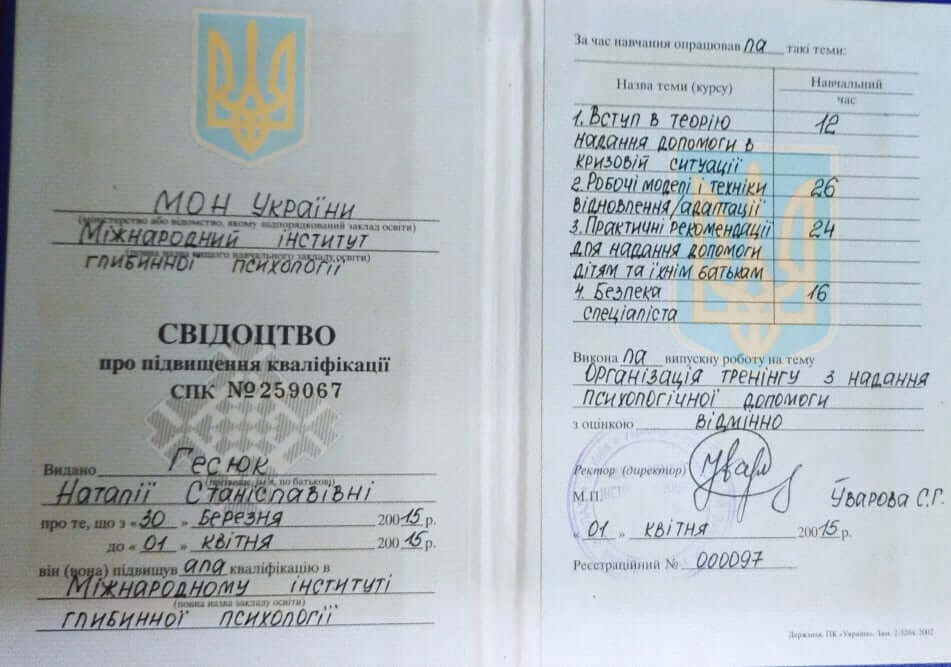 МОН України
(міністерство або відомство, якому підпорядкований заклад освіти)
Міжнародний інститут
глибинної психології
СВІДОЦТВО
про підвищення кваліфікації
СПК №259067
Видано Гесюк
(прізвище, ім'я, по батькові)
Наталії Станіславівні
про те, що з «30» Березня 20015 р.
до «01» квітня 20015 р.
він (вона) підвищув ала кваліфікацію в
Міжнародному інституті
(повна назва закладу освіти)
глибинної психології
За час навчання опрацював ла такі теми:
Назва теми (курсу) Навчальний
час
1. Вступ в теорію 12
надання допомоги в
кризовій ситуації
2. Робочі моделі і техніки 26
відновлення/адаптації
3. Практичні рекомендації 24
для надання допомоги
дітям та їхнім батькам
4. Безпека 16
спеціаліста
Викона ла випускну роботу на тему
Організація тренінгу з надання
психологічної допомоги
з оцінкою відмінно
Ректор (директор)
М.П. Уварова С.Г.
«01» квітня 20015 р.
Реєстраційний № 000097